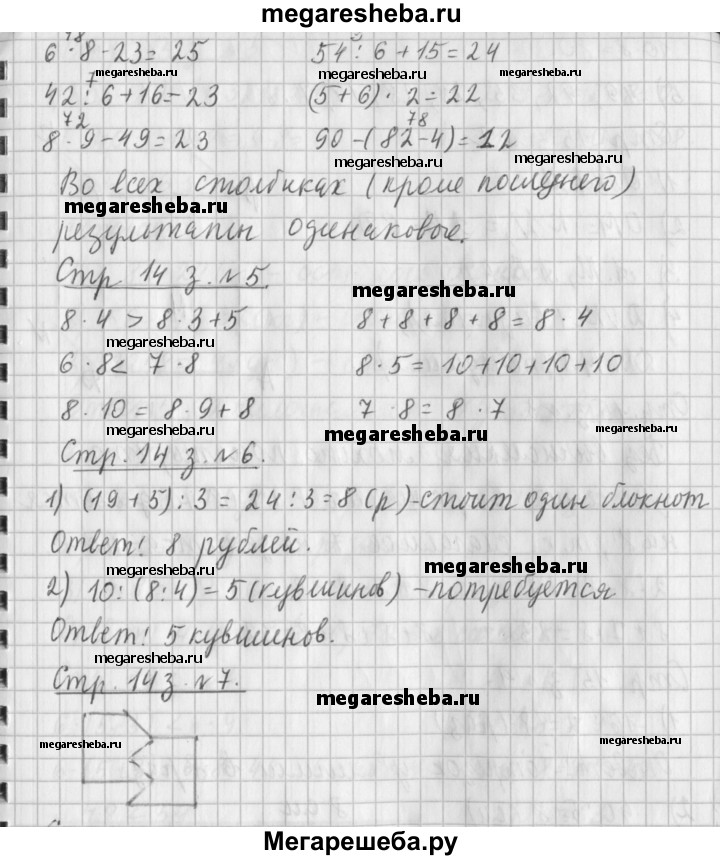 megaresheba.ru
18
6 · 8 - 23 = 25    54 : 6 + 15 = 24
megaresheba.ru    megaresheba.ru
7
42 : 6 + 16 = 23    (5 + 6) · 2 = 22
72    78
8 · 9 - 49 = 23    90 - (82 - 4) = 12
megaresheba.ru    megaresheba.ru
Во всех столбиках (кроме последнего)
megaresheba.ru
результаты одинаковые.
Стр. 14 з. №5.
megaresheba.ru
8 · 4 > 8 · 3 + 5    8 + 8 + 8 + 8 = 8 · 4
megaresheba.ru
6 · 8 < 7 · 8    8 · 5 = 10 + 10 + 10 + 10
8 · 10 = 8 · 9 + 8    7 · 8 = 8 · 7
megaresheba.ru    megaresheba.ru    megaresheba.ru
Стр. 14 з. №6.
1) (19 + 5) : 3 = 24 : 3 = 8 (р) - стоит один блокнот
Ответ! 8 рублей.
megaresheba.ru
2) 10 : (8 : 4) = 5 (кувшинов) - потребуется
Ответ! 5 кувшинов.
megaresheba.ru
Стр. 14 з. №7.
megaresheba.ru
megaresheba.ru    megaresheba.ru
Мегарешеба.ру